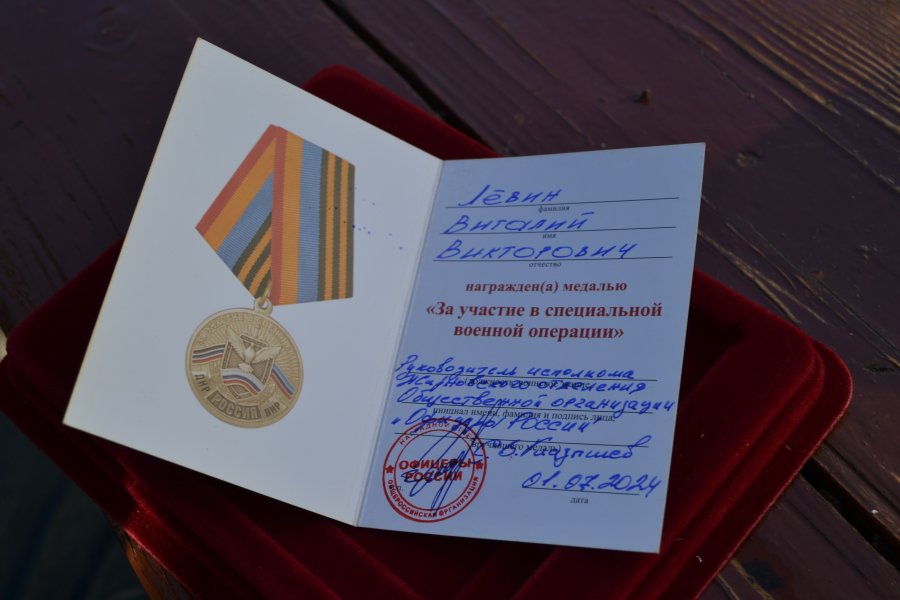 ДНР РОССИЯ ЛНР
Лёвин
фамилия
Виталий
имя
Викторович
отчество
награжден(а) медалью
«За участие в специальной
военной операции»
Руководитель исполкома
Жирновского отделения
Общественной организации
инициал имени, фамилия и подпись лица,
„Офицеры России"
вручившего медаль)
НАГРАДНОЙ
ОФИЦЕРЫ
РОССИИ
ОБЩЕРОССИЙСКАЯ ОРГАНИЗАЦИЯ
01.07.2024
дата